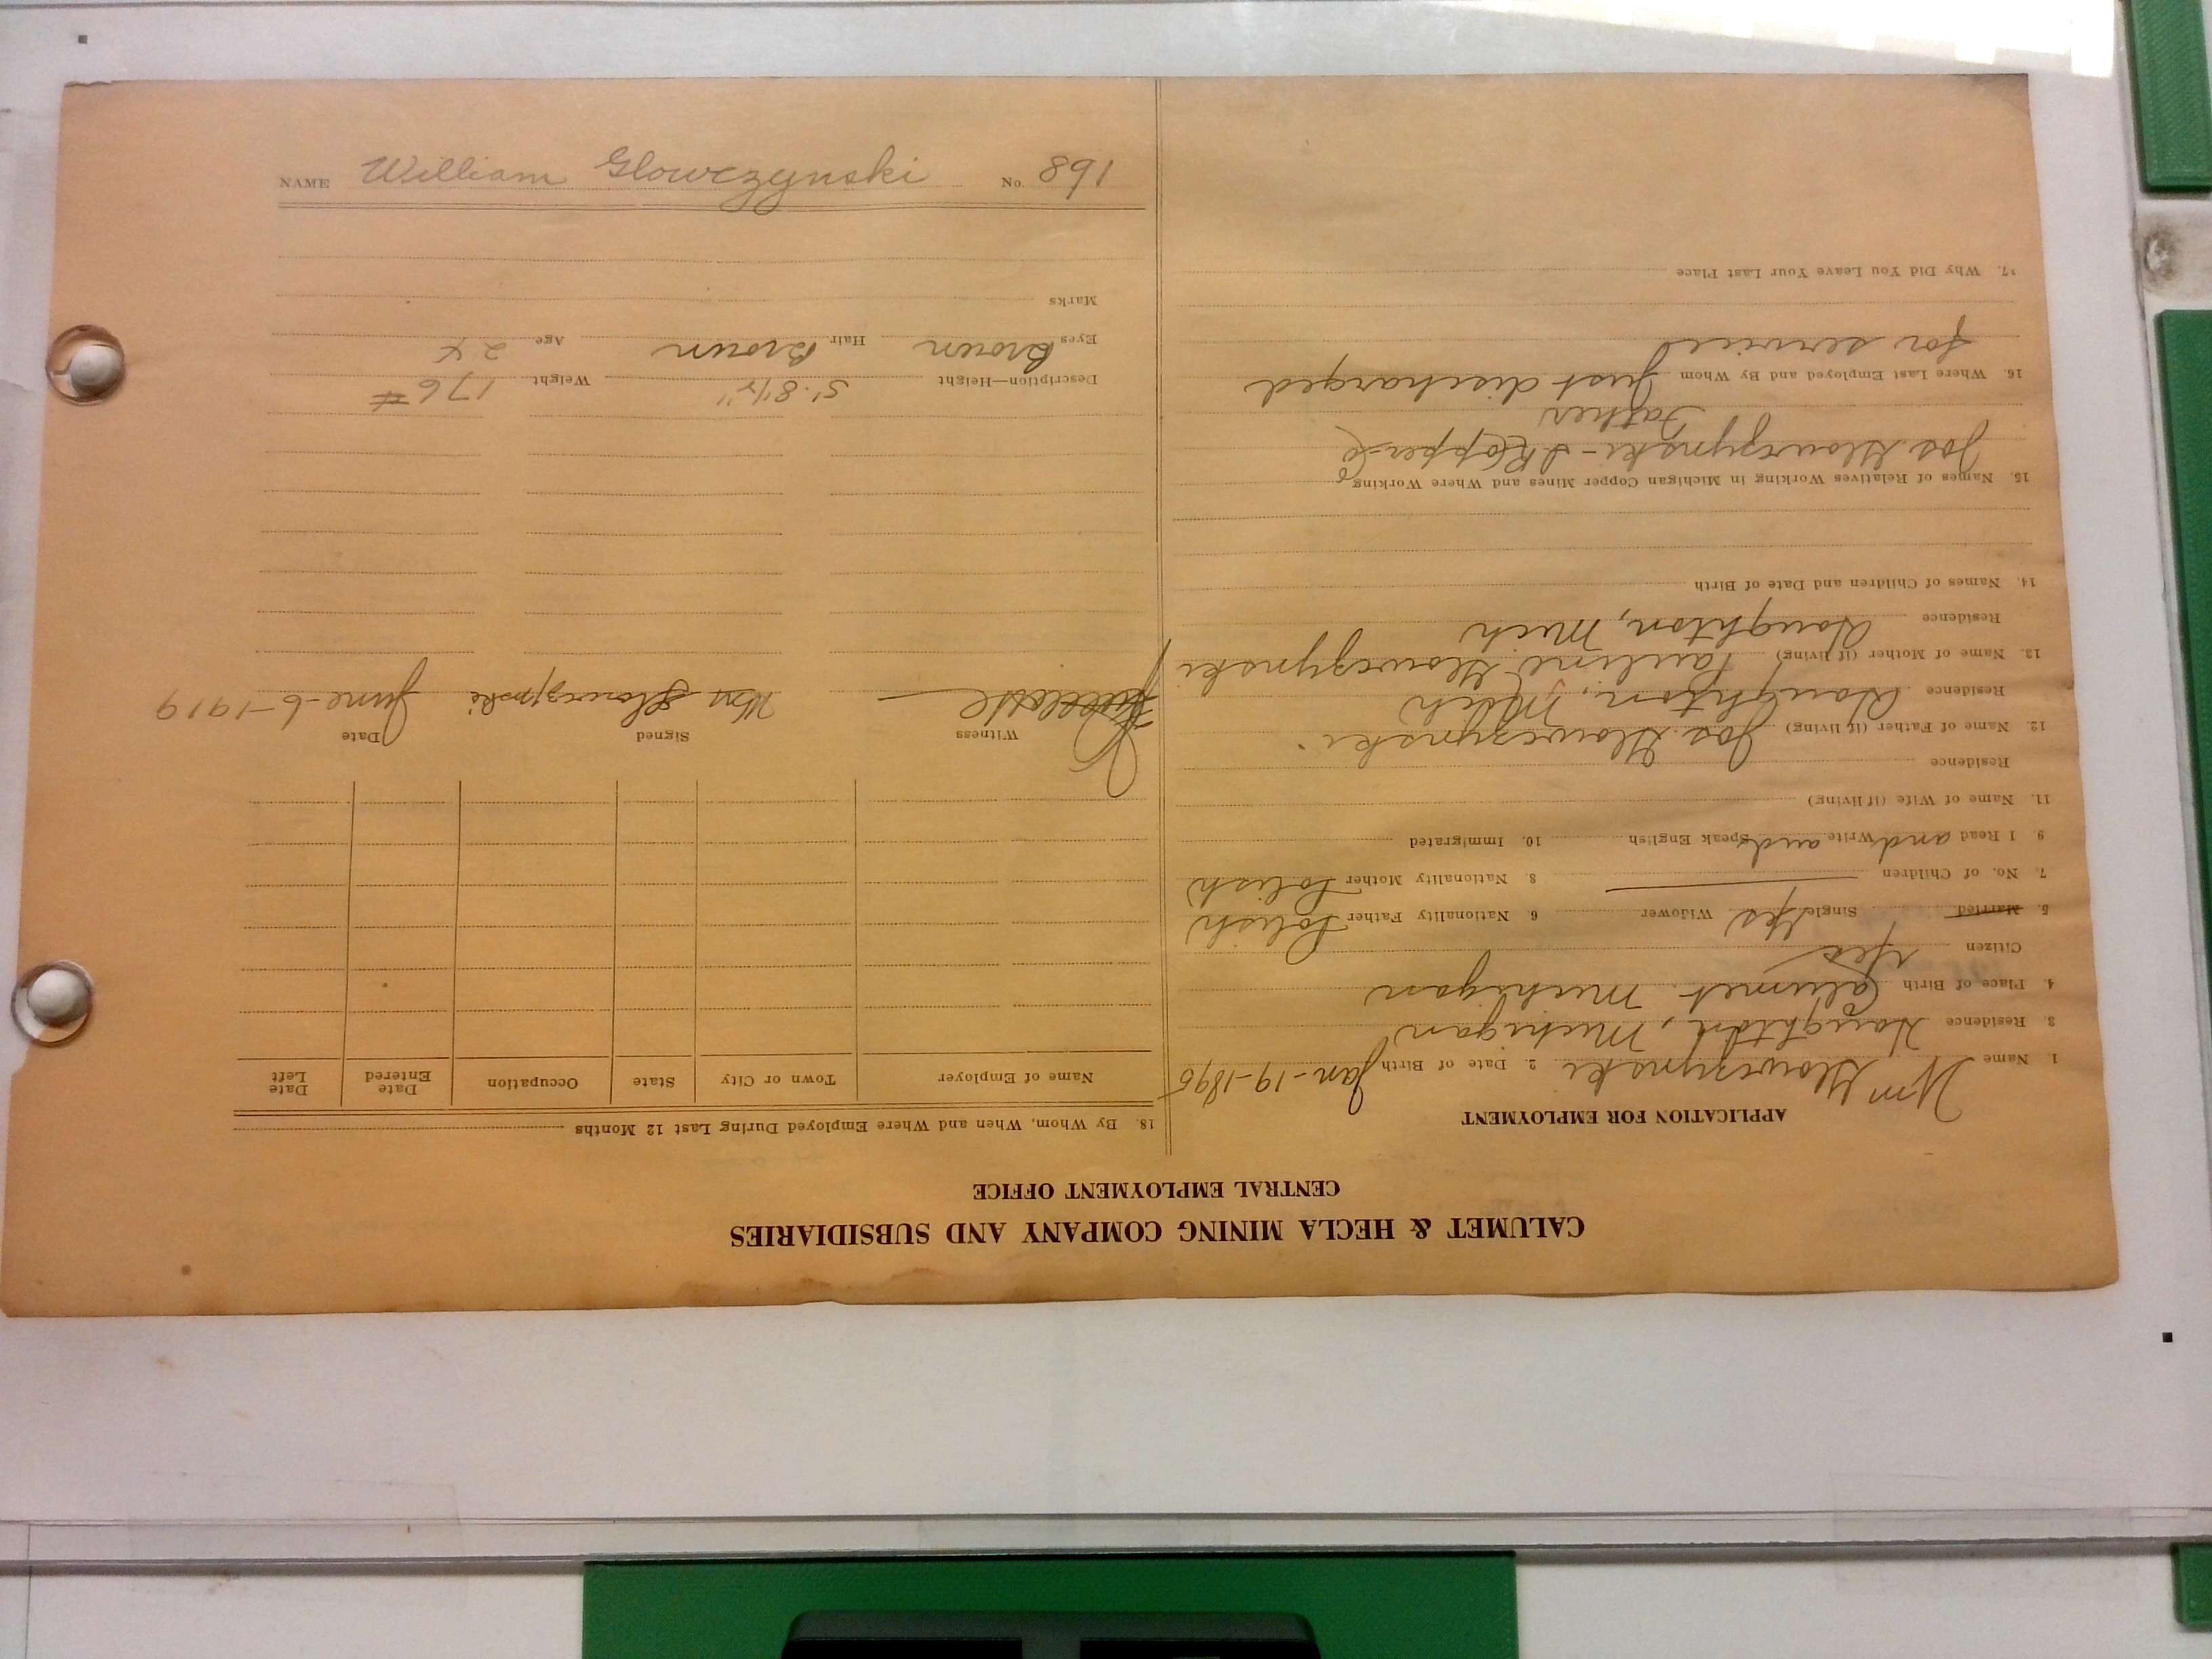 CALUMET & HECLA MINING COMPANY AND SUBSIDIARIES
CENTRAL EMPLOYMENT OFFICE
APPLICATION FOR EMPLOYMENT
1. Name Wm Glowczynski 2. Date of Birth Jan-19-1895
3. Residence Houghton, Michigan
4. Place of Birth Calumet Michigan
Citizen Yes
5. Married Single Yes Widower 6. Nationality Father Polish
7. No. of Children 8. Nationality Mother Polish
9. I Read and Write and Speak English 10. Immigrated
11. Name of Wife (if living)
Residence
12. Name of Father (if living) Jos. Glowczynski
Residence Houghton, Mich
13. Name of Mother (if living) Pauline Glowczynski
Residence Houghton, Mich
14. Names of Children and Date of Birth
15. Names of Relatives Working in Michigan Copper Mines and Where Working
Jos Glowczynski -
Father
16. Where Last Employed and By Whom Just discharged
for service
17. Why Did You Leave Your Last Place
18. By Whom, When and Where Employed During Last 12 Months
Name of Employer Town or City State Occupation Date Entered Date Left
Witness Signed Date
Wm Glowczynski June-6-1919
Description—Height 5'.8½" Weight 176 #
Eyes Brown Hair Brown Age 24
Marks
NAME William Glowczynski No. 891